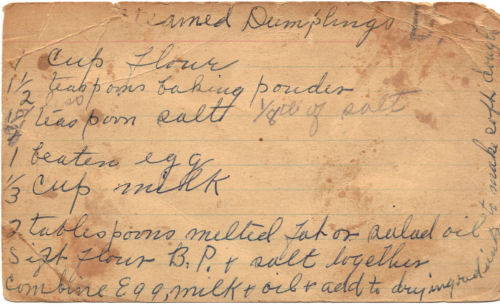 Steamed Dumplings
1 cup flour
1 1/2 teaspoons baking powder
teaspoon salt 1/8 of salt
1 beaten egg
1/3 cup milk
2 tablespoons melted fat or salad oil
Sift flour B.P. + salt together
combine Egg, milk + oil + add to dry ingredients
to make soft dough